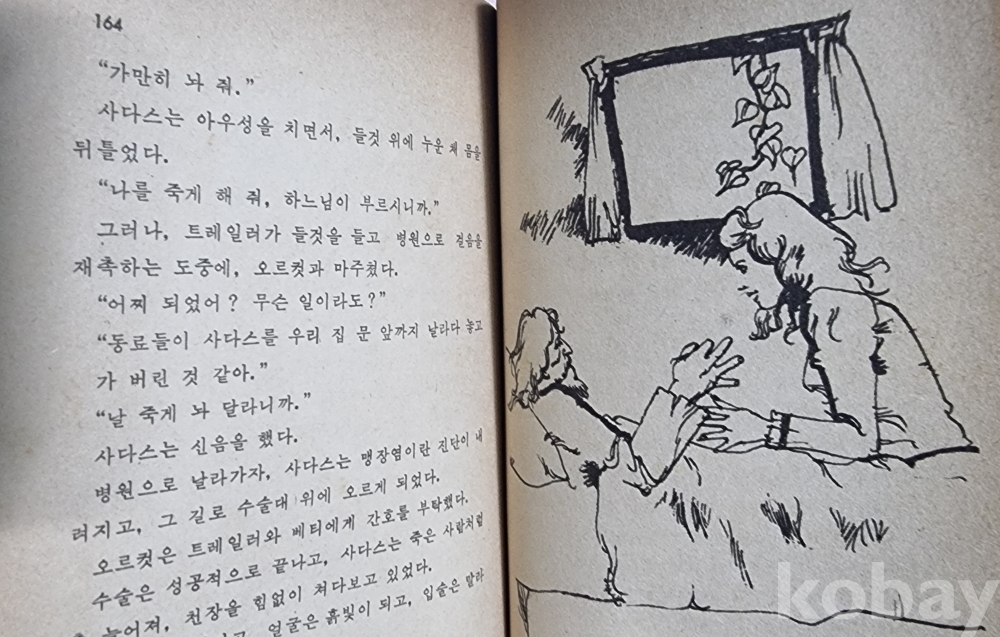 164
“가만히 놔 줘.”
사다스는 아우성을 치면서, 들것 위에 누운 채 몸을
뒤틀었다.
“나를 죽게 해 줘, 하느님이 부르시니까.”
그러나, 트레일러가 들것을 들고 병원으로 걸음을
재촉하는 도중에, 오르컷과 마주쳤다.
“어찌 되었어? 무슨 일이라도?”
“동료들이 사다스를 우리 집 문 앞까지 날라다 놓고
가 버린 것 같아.”
“날 죽게 놔 달라니까.”
사다스는 신음을 했다.
병원으로 날라가자, 사다스는 맹장염이란 진단이 내
려지고, 그 길로 수술대 위에 오르게 되었다.
오르컷은 트레일러와 베티에게 간호를 부탁했다.
수술은 성공적으로 끝나고, 사다스는 죽은 사람처럼
늘어져, 천장을 힘없이 쳐다보고 있었다.
얼굴은 흙빛이 되고, 입술은 말라
kobay